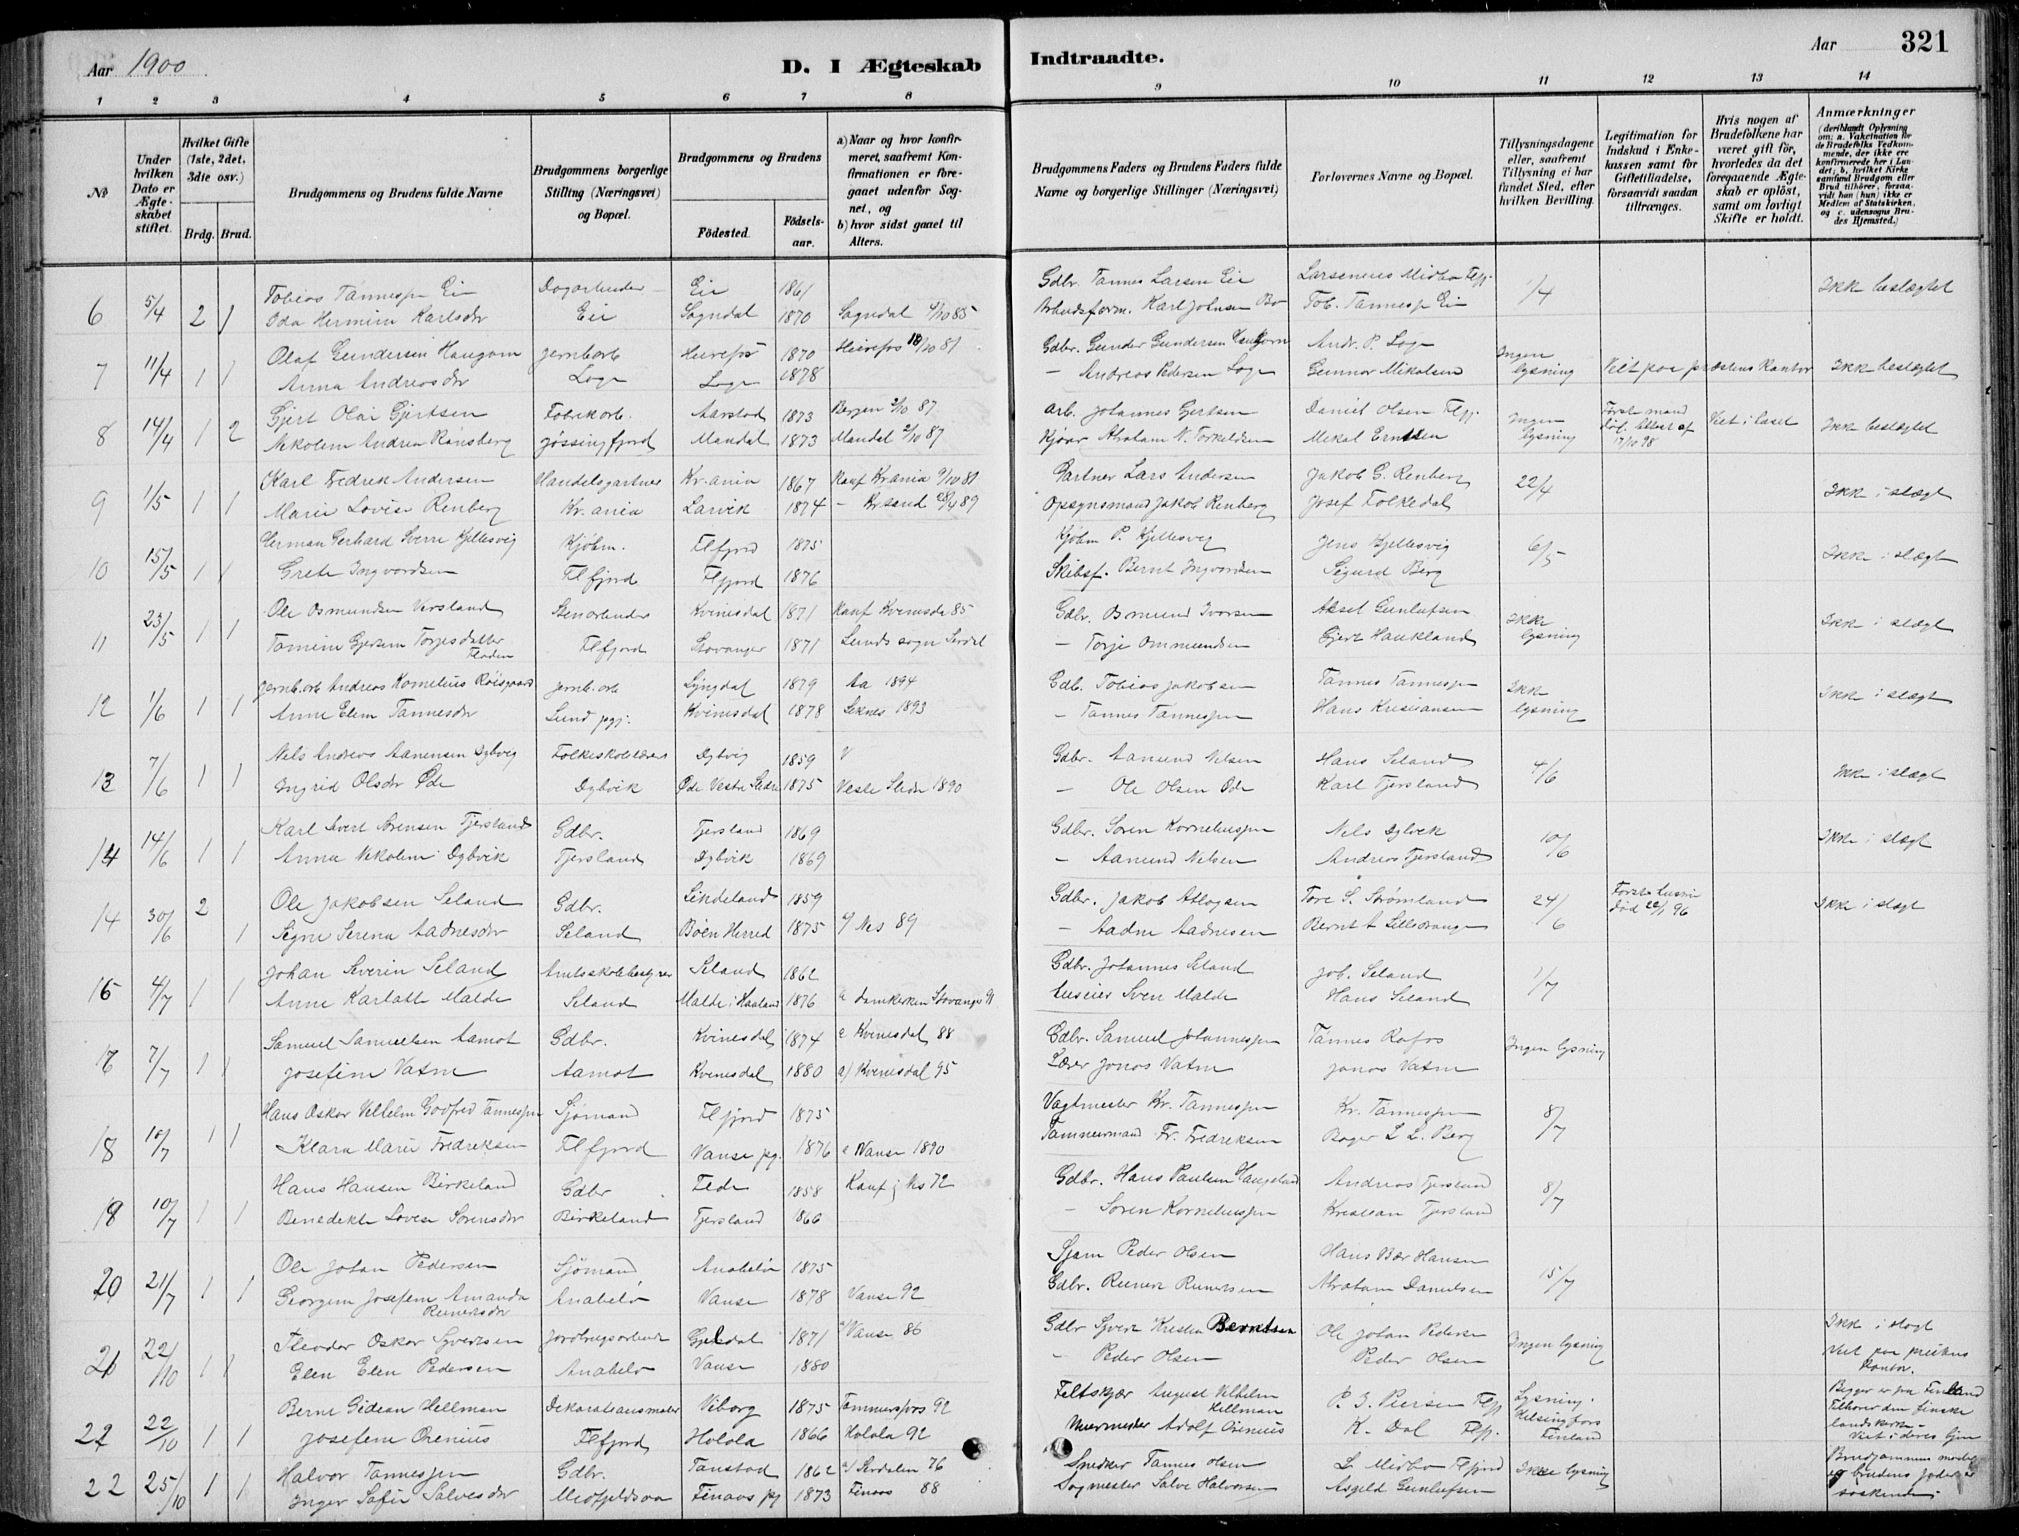 Aar 1900
D. I Ægteskab
Indtraadte.
Aar
321
1 2 3 4 5 6 7 8 9 10 11 12 13 14
No
Under hvilken Dato er Ægteskabet stiftet.
Hvilket Gifte (1ste, 2det, 3die osv.)
Brdg. Brud.
Brudgommens og Brudens fulde Navne
Brudgommens borgerlige Stilling (Næringsvei) og Bopæl.
Brudgommens og Brudens
Födested.
Födsels-aar.
a) Naar og hvor konfirmeret, saafremt Konfirmationen er foregaaet udenfor Sognet, og
b) hvor sidst gaaet til Alters.
Brudgommens Faders og Brudens Faders fulde Navne og borgerlige Stillinger (Næringsvei)
Forlovernes Navne og Bopæl.
Tillysningsdagene eller, saafremt Tillysning ei har fundet Sted, efter hvilken Bevilling.
Legitimation for Indskud i Enkekassen samt for Giftetilladelse, forsaavidt saadan tiltrænges.
Hvis nogen af Brudefolkene har været gift för, hvorledes da det foregaaende Ægteskab er oplöst, samt om lovligt Skifte er holdt.
Anmærkninger (deriblandt Oplysning om: a. Vakcination for de Brudefolks Vedkommende, der ikke ere konfirmerede her i Landet; b. hvilket Kirkesamfund Brudgom eller Brud tilhörer, forsaavidt han (hun) ikke er Medlem af Statskirken, og c. udensogns Brudes Hjemsted.)
6 5/4 2 1 Tobias Tønnesen Eie Dagarbeider Eie 1861 Gdbr. Tønnes Larsen Eie Larsenius Midbø Flfj. 1/4 Ikk beslægtet
Oda Hermine Karlsdr Eie Sogndal 1870 Sogndal 4/10 85 Arbeidsform. Karl Johnsen Bø Tob. Tønnesen Eie
7 11/4 1 1 Olaf Gundersen Haugom jernb.arb Heirefos 1870 Heirefos 18/10 81 Gdbr. Gunder Gundersen Haugom Andr. P. Loge Ingen lysning Viet paa præstens Kontor Ikk beslægtet
Anna Andreasdr Loge Loge 1878 — Andreas Pedersen Loge Gunnar Mikalsen
8 14/4 1 2 Gjert Olai Gjertsen Fabrikarb. Aarstad 1873 Bergen 2/10 87 Arb. Johannes Gjertsen Daniel Olsen Flfj. Ingen lysning Første mand død 17/10 98 Ikk beslægtet
Nikoline Andrea Rønsberg Jøssingfjord Mandal 1873 Mandal 2/10 87 Abraham N. Torkeldsen Mikal Erntsen
9 1/5 1 1 Karl Fredrik Andersen Handelsgartner Kr.ania 1867 Konf Kr.ania 9/10 81 Gartner Lars Andersen Jakob G. Renberg 22/4 Ikk i slægt
Marie Lovise Renberg Kr.ania Larvik 1874 — Kr.sand 28/4 89 Opsynsmand Jakob Renberg Josef Folkedal
10 15/5 1 1 Herman Gerhard Sverre Kjellesvig Kjøbm. Flfjord 1875 Kjøbm P. Kjellesvig Jens Kjellesvig 6/5 Ikk i slægt
Grete Ingvardsen Flfjord Flfjord 1876 Skibsf. Bernt Ingvardsen Sigurd Berg
11 23/5 1 1 Ole Osmundsen Versland Stenarbeider Kvinesdal 1871 Konf Kvinesdal 85 Gdbr. Osmund Ivarsen Aksel Gunlufsen Ikke lysning Ikk i slægt
Tomine Gjersine Torjesdatter Floden Flfjord Stavanger 1871 Lunds sogn Sirdal — Torje Ommundsen Gjert Haukland
12 1/6 1 1 Jernb.arb Andreas Kornelius Røisgaard Jernb.arb Lyngdal 1879 Aa 1894 Gdb. Tobias Jakobsen Tønnes Tønnesen Ikk lysning Ikk i slægt
Anne Elene Tønnesdr Lund pgj. Kvinesdal 1878 1893 — Tønnes Tønnesen Hans Kristiansen
13 7/6 1 1 Nils Andreas Aanensen Dybvig Folkeskolelærer Dybvig 1859 Gdbr. Aanund Nilsen Hans Seland 4/6 Ikk i slægt
Ingrid Olsdr Øde Dybvik Øde Vestre Slidre 1875 Vestr Slidre 1890 — Ole Olsen Øde Karl Tjersland
14 14/6 1 1 Karl Sivert Sørensen Tjersland Gdbr. Tjersland 1869 Gdbr. Søren Korneliussen Nils Dybvik 10/6 Ikk i slægt
Anna Nikoline Dybvik Tjersland Dybvik 1869 — Aanund Nilsen Andreas Tjersland
14 30/6 2 1 Ole Jakobsen Seland Gdbr. Lindeland 1859 Gdbr. Jakob Atlogsen Tore S. Strømland 24/6 Første hustru død 22/1 96 Ikk i slægt
Signe Serena Aadnesdr Seland Bøen Herred 1875 a/ Nes 89 — Aadne Aadnesen Bernt A Lilledrange
15 4/7 1 1 Johan Severin Seland Amtsskolebestyrer Seland 1862 Gdbr. Johannes Seland Job. Seland 1/7
Anne Karlotte Malde Seland Malde i Haaland 1876 a Domkirken Stavanger 91 Huseier Sven Malde Hans Seland
16 7/7 1 1 Samuel Samuelsen Aamot Gdbr. Kvinesdal 1874 a Kvinesdal 88 Gdbr. Samuel Johannesen Tønnes Rafos Ingen lysning
Josefine Vatne Aamot Kvinesdal 1880 a/ Kvinesdal 95 Lærer Jonas Vatne Jonas Vatne
18 10/7 1 1 Hans Oskar Vilhelm Godfred Tønnesen Sjømand Flfjord 1875 Vagtmester Kr. Tønnesen Kr. Tønnesen 8/7
Klara Marie Fredriksen Flfjord Vanse pg. 1876 a Vanse 1890 Tømmermand Fr. Fredriksen Bager L L. Berg
19 10/7 1 1 Hans Hansen Birkeland Gdbr. Fede 1858 Konf i Nes 72 Gdbr. Hans Paulsen Haugeland Andreas Tjersland 8/7
Benedikte Lovise Sørensdr Birkeland Tjersland 1866 — Søren Korneliussen Kristian Tjersland
20 21/7 1 1 Ole Johan Pedersen Sjømand Anabelø 1875 Sjøm Peder Olsen Hans Bær Hansen 15/7
Georgine Josefine Amanda Reinertsdr Anabelø Vanse 1878 Vanse 92 Gdbr. Reinert Reinertsen Abraham Danielsen
21 22/10 1 1 Theodor Oskar Syvertsen Jordbrugsarbeider Gyldal 1871 Vanse 86 Gdbr Syvert Kristen Berntsen Ole Johan Pedersen Ingen lysning Ikk i slægt
Elen Elene Pedersen Anabelø Vanse 1880 — Peder Olsen Peder Olsen Viet paa prestens Kontor.
22 22/10 1 1 Bernt Gideon Hellman Dekorationsmaler Viborg 1875 Tammerfors 92 Feltskjær August Vilhelm Hellman P. G. Peersen Flfj Lysning. Helsingfors Finland Begge er fra Finland Tilhører den finske landskirke— Viet i deres hjem
Josefine Orenius Flfjord Holola 1866 Holola 92 Murmester Adolf Orenius K. Dal Flfj.
22 25/10 1 1 Halvor Tønnessen Gdbr. Tonstad 1862 a/ Sirdalen 76 Snedker Tønnes Olsen L. Midbø Flfjord Ikke lysning Brudgommens moder og brudens fader er søskende.
Inger Sofie Salvesdr Midtfjeldsaa Finaas pg 1873 Finaas 88 Sagmester Salve Halvorsen Asgeld Gunlufsen